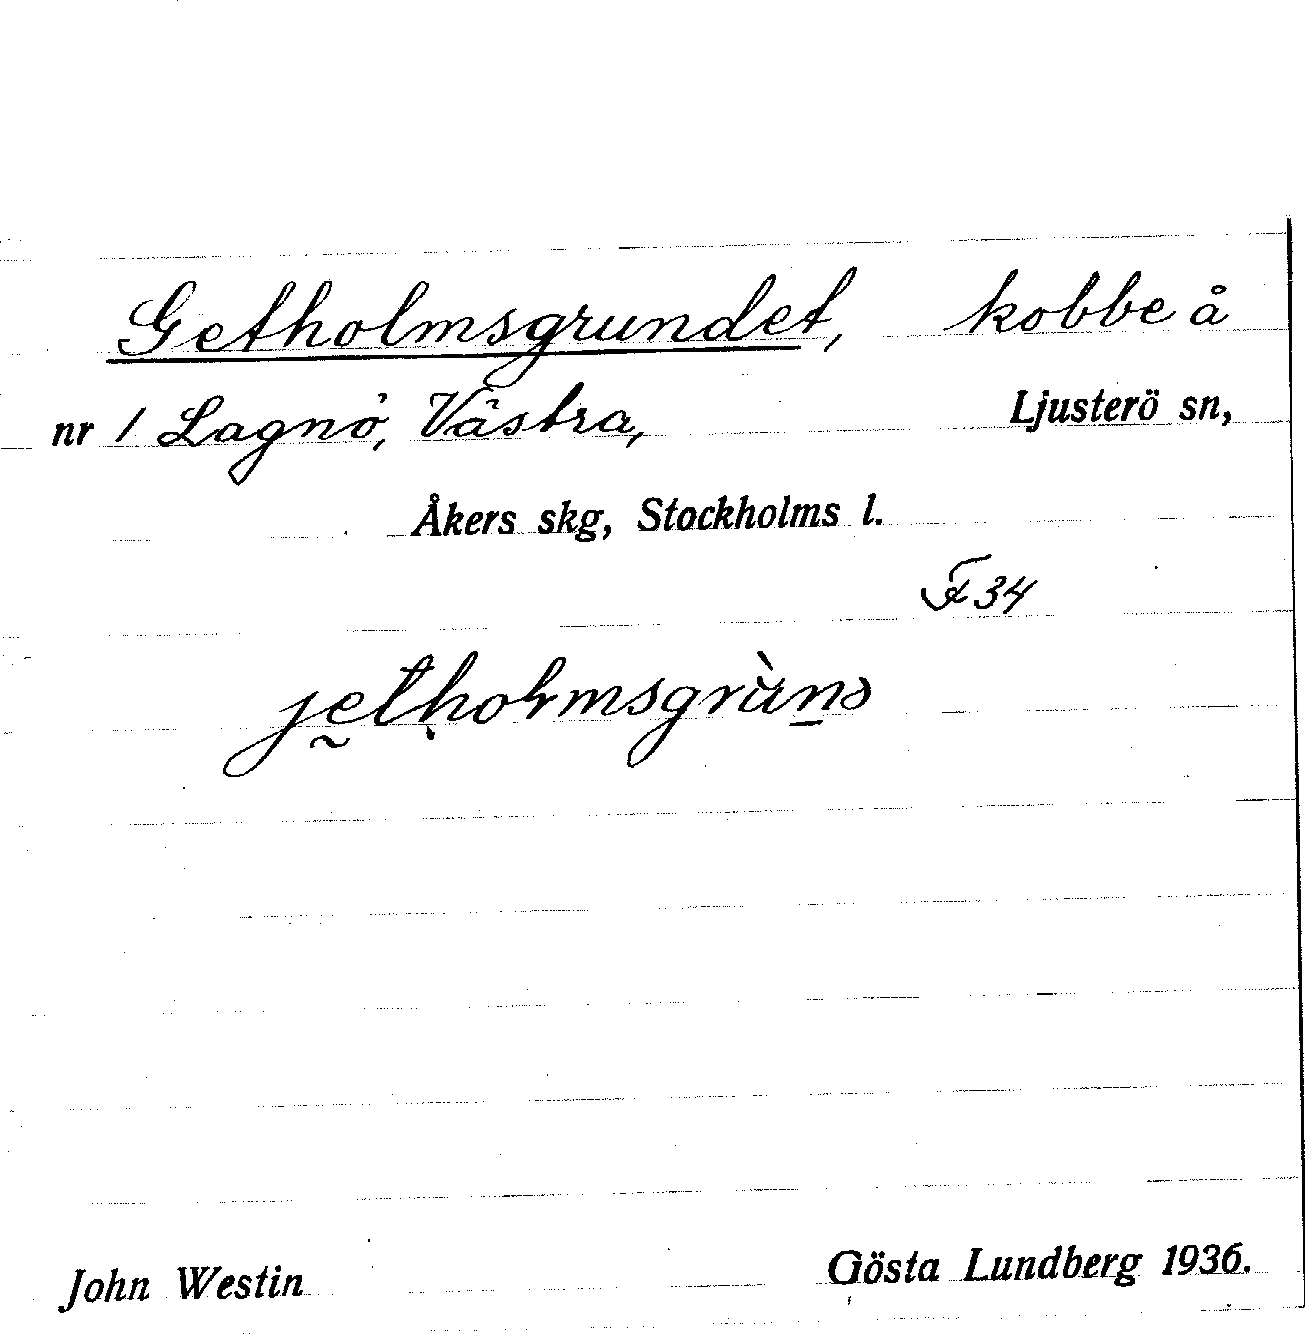 Getholmsgrundet, kobbe å
nr 1 Lagnö, Västra, Ljusterö sn,
Åkers skg, Stockholms l.
F 34
John Westin Gösta Lundberg 1936.